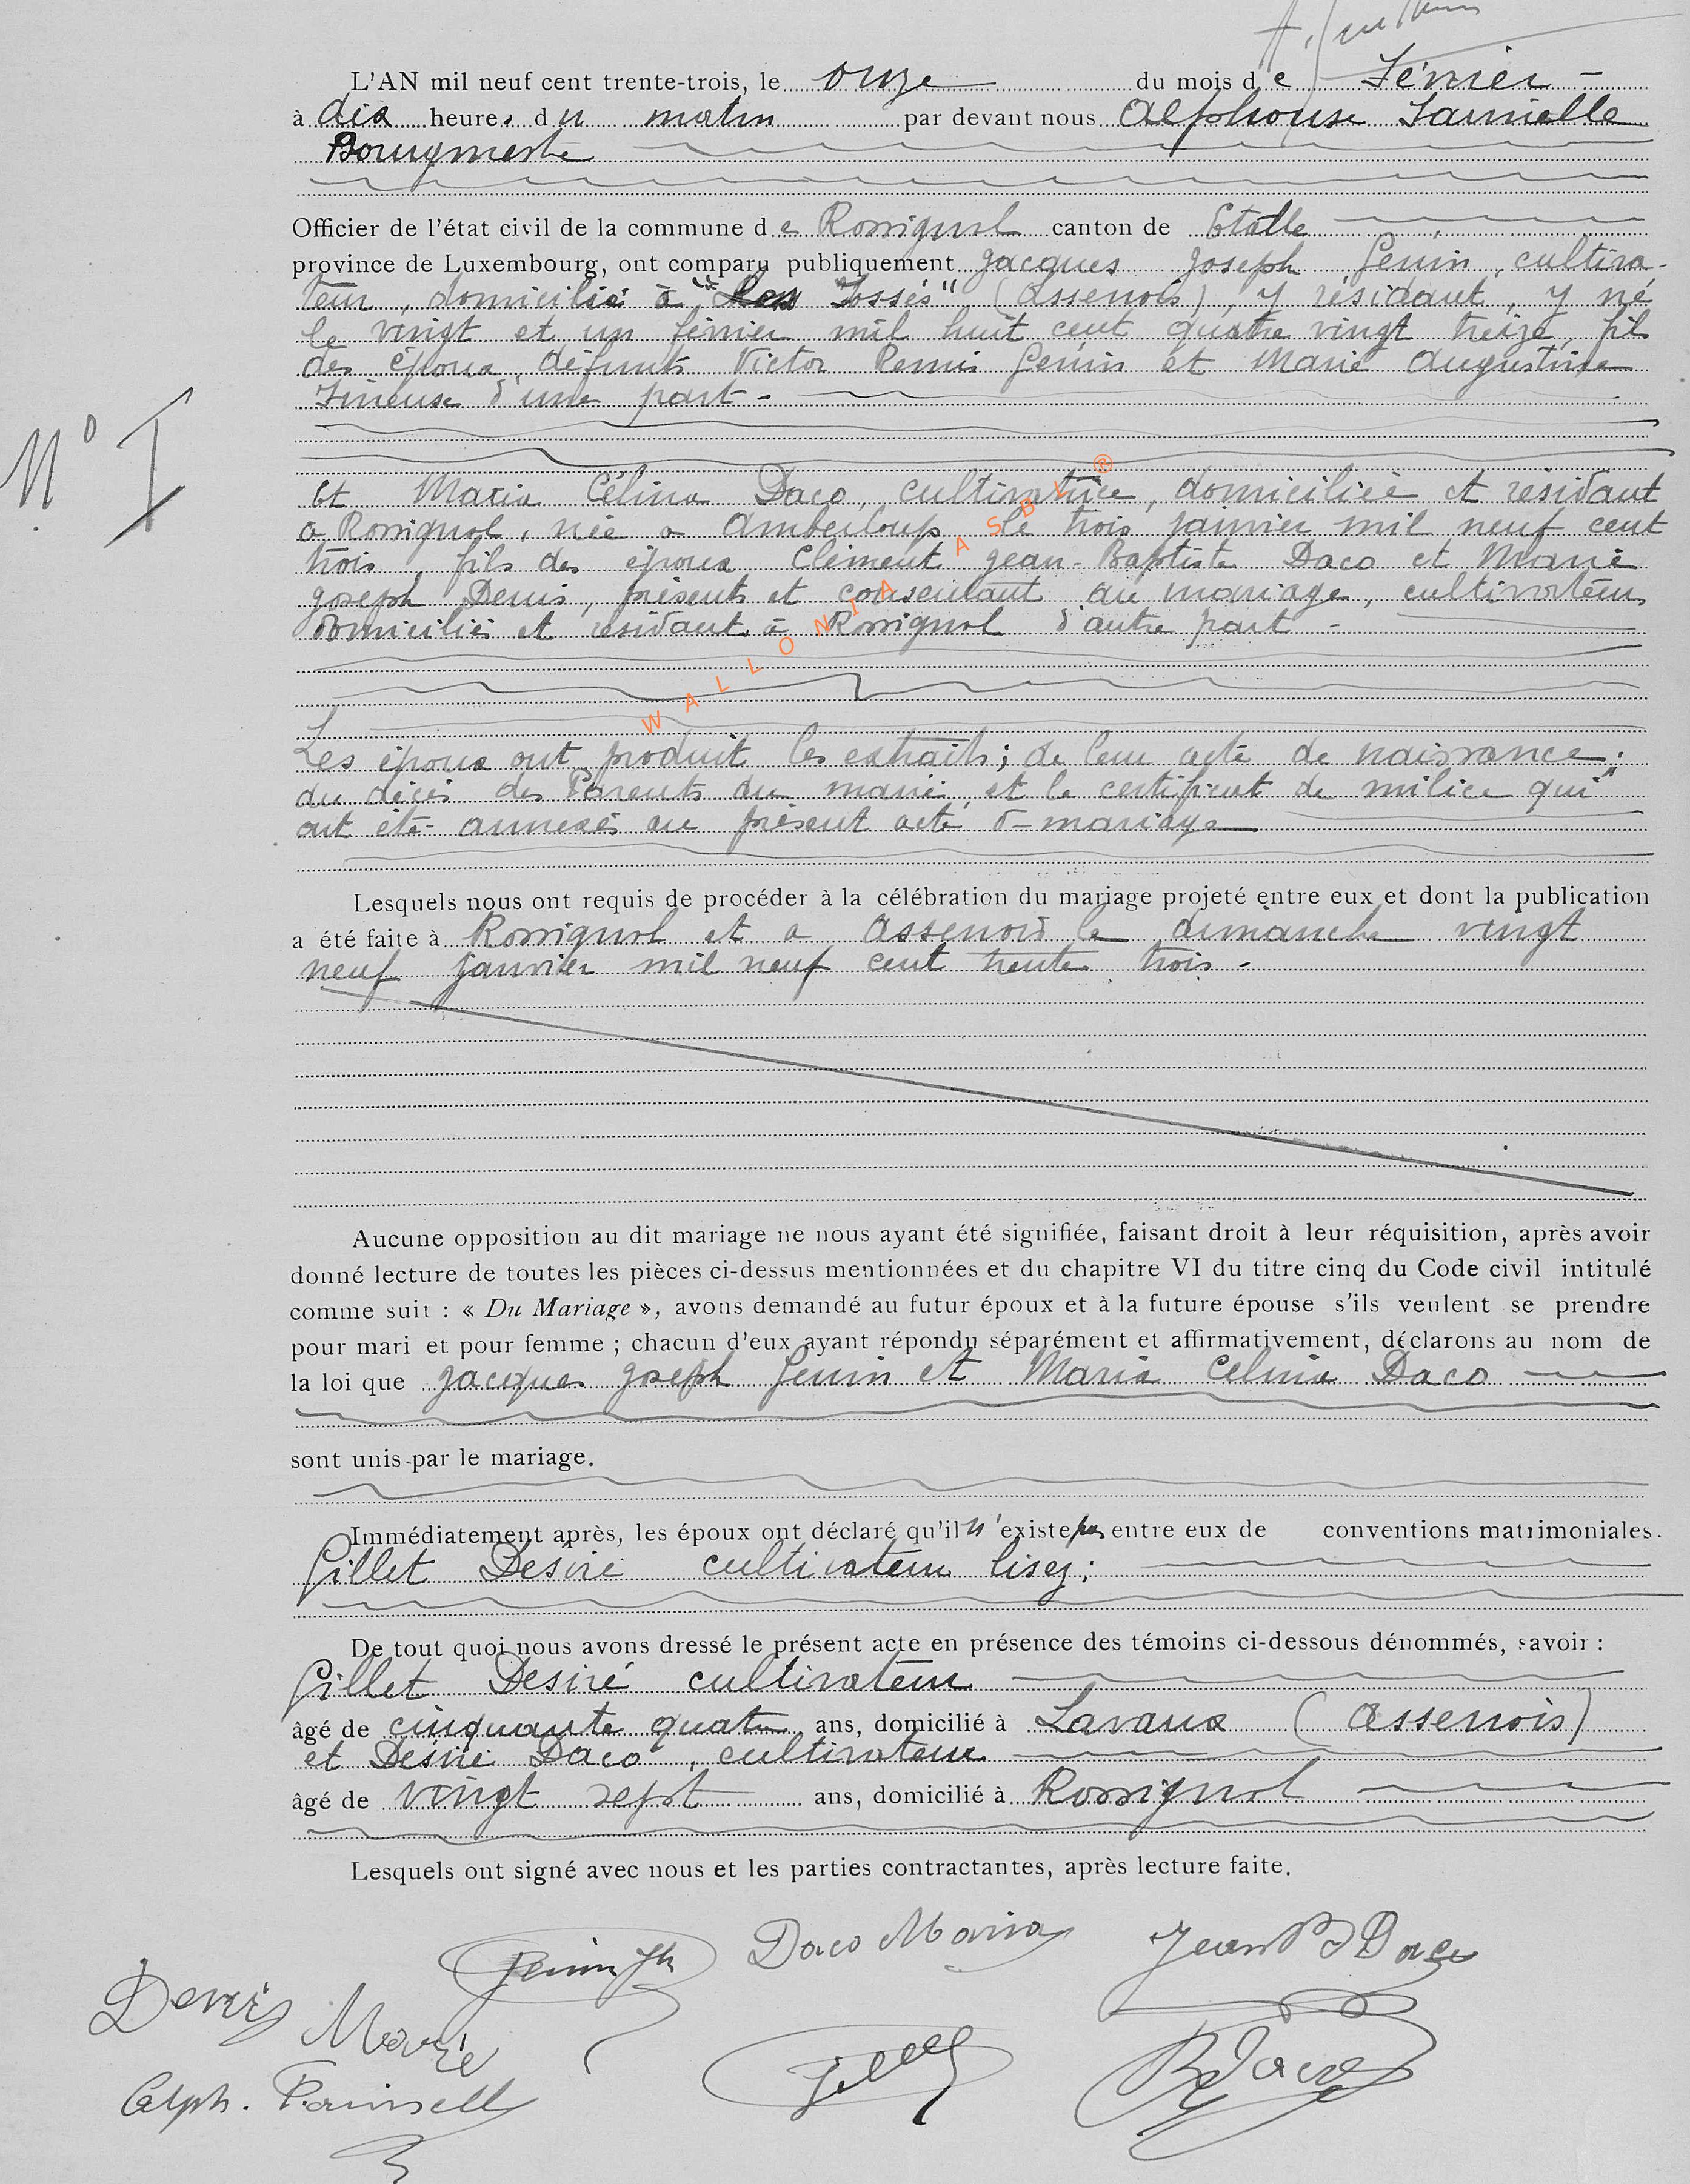 L'AN mil neuf cent trente-trois, le onze du mois de Février
à dix heures du matin par devant nous Alphonse
Bourgmestre
Officier de l'état civil de la commune de Rossignol canton de Etalle
province de Luxembourg, ont comparu publiquement Jacques Joseph Génin, cultiva-
teur, domicilié à "Les Fossés" (Assenois), y résidant, y né
le vingt et un février mil huit cent quatre vingt treize, fils
des époux défunts Victor Remis Génin et Marie Augustine
d'une part -
N° I
Et Maria Célina Daco, cultivatrice, domiciliée et résidant
a Rossignol, née a Amberloup le trois janvier mil neuf cent
trois, fils des époux Clément Jean-Baptiste Daco et Marie
Joseph Denis, présents et consentant au mariage, cultivateurs
domiciliés et résidant à Rossignol d'autre part -
WALLONIA ASBL ®
Les époux ont produit les extraits; de leur acte de naissance;
du décès des Parents du marié, et le certificat de milice qui
ont été annexés au présent acte d- mariage
Lesquels nous ont requis de procéder à la célébration du mariage projeté entre eux et dont la publication
a été faite à Rossignol et a Assenois le dimanche vingt
neuf janvier mil neuf cent trente trois -
Aucune opposition au dit mariage ne nous ayant été signifiée, faisant droit à leur réquisition, après avoir
donné lecture de toutes les pièces ci-dessus mentionnées et du chapitre VI du titre cinq du Code civil intitulé
comme suit : « Du Mariage », avons demandé au futur époux et à la future épouse s'ils veulent se prendre
pour mari et pour femme ; chacun d'eux ayant répondu séparément et affirmativement, déclarons au nom de
la loi que Jacques Joseph Genin et Maria Celina Daco
sont unis par le mariage.
Immédiatement après, les époux ont déclaré qu'il n'existe pas entre eux de conventions matrimoniales.
Gillet Désiré cultivateur lisez;
De tout quoi nous avons dressé le présent acte en présence des témoins ci-dessous dénommés, savoir :
Gillet Desiré cultivateur
âgé de cinquante quatre ans, domicilié à Lavaux (Assenois)
et Désiré Daco, cultivateur
âgé de vingt sept ans, domicilié à Rossignol
Lesquels ont signé avec nous et les parties contractantes, après lecture faite.
Genin Jh Daco Maria Jean B Daco
Denis Marie
Alph.